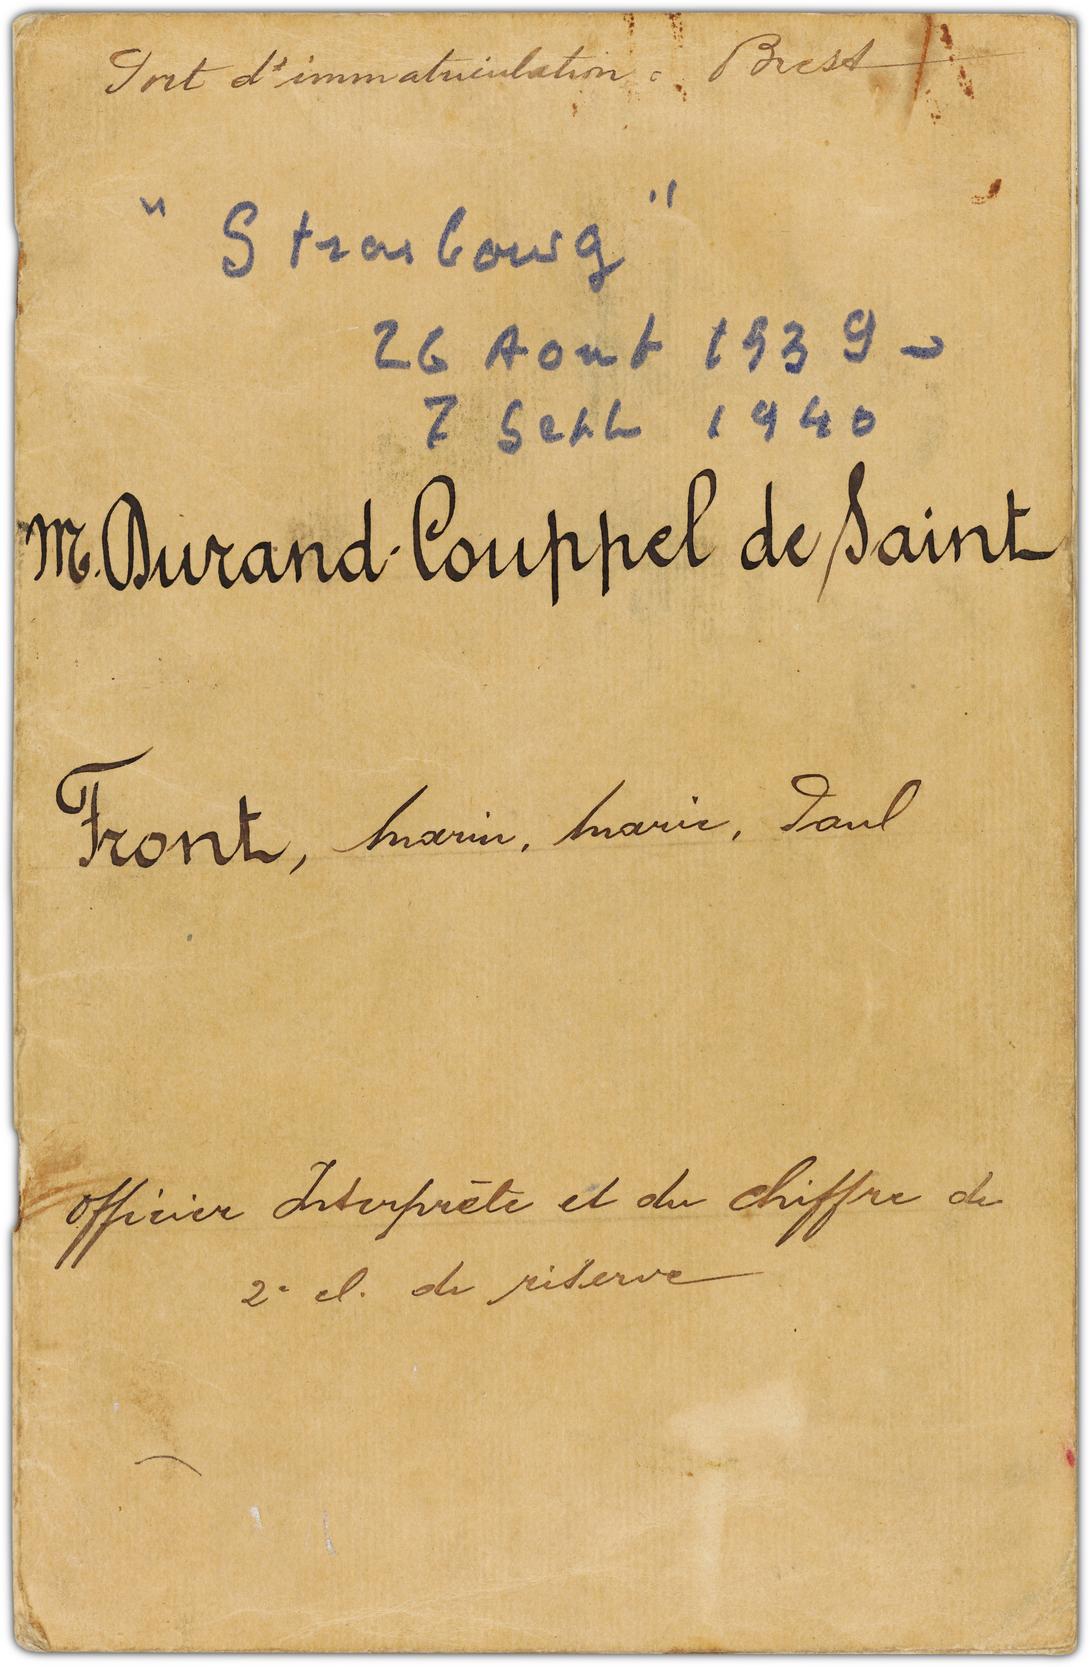 Port d'immatriculation : Brest
" Strasbourg "
26 Aout 1939 -
7 Sept 1940
M. Durand-Couppel de Saint
Front, Marin, Marie, Paul
Officier Interprète et du chiffre de
2e cl. de réserve